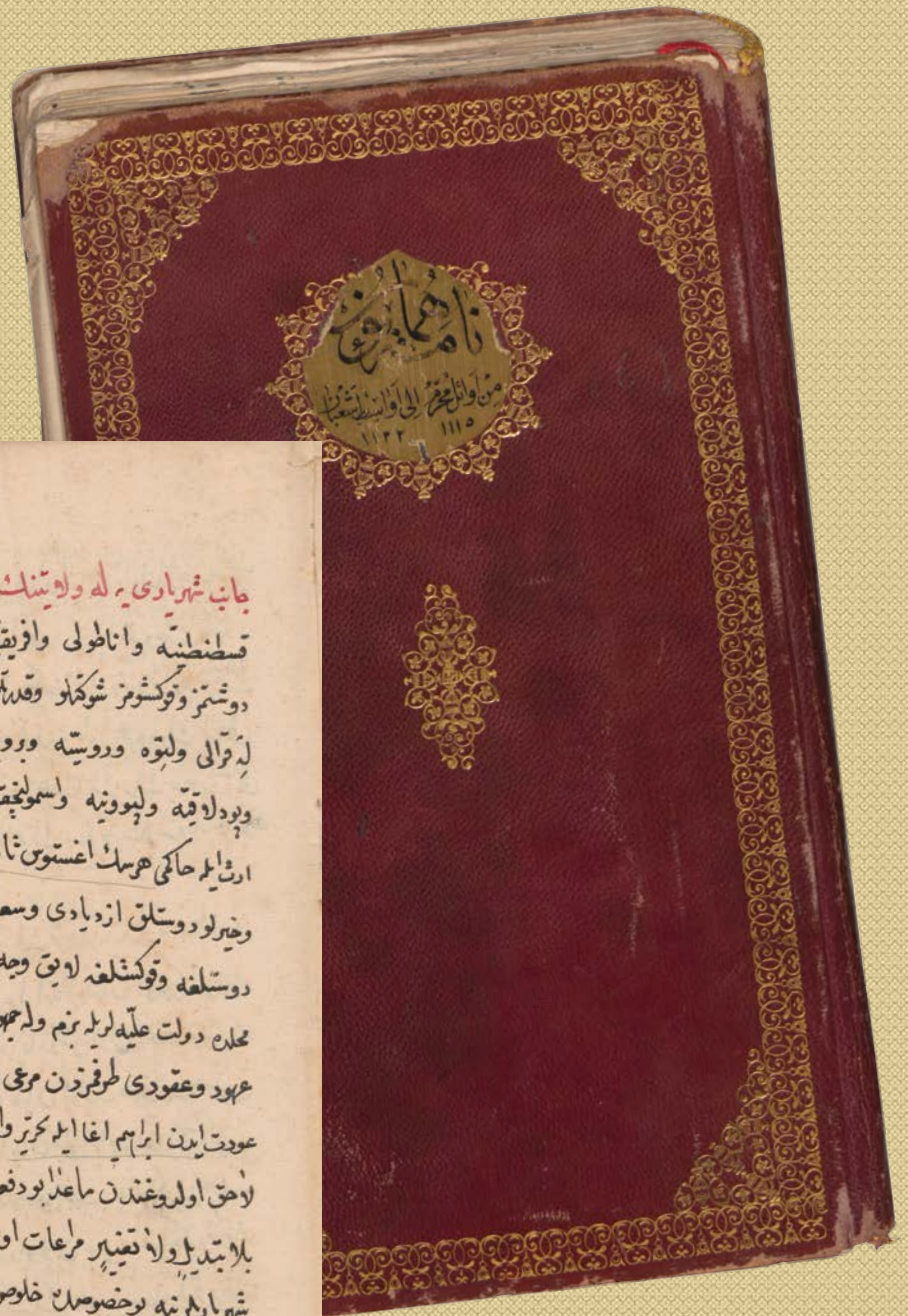 نامه همایون
من اوائل محرم الی اواسط شعبان
۱۱۱٥ ۱۱۳۲
جانب شهریاری یه له ولایتنك
قسطنطنیه واناطولی وافریقه
دوستمز وقوکشومز شوکتلو وقدرتلو
له قرالی ولیتوه وروسیه وپرو
وپودلاقیه ولیوونیه واسمولنچقه
ارث ایله حاکمی هرسك اغستوس ثا
وخیرلو دوستلق ازدیادی وسعا
دوستلغه وقوکشیلغه لایق وجه
محلده دولت علیه لریله بزم وله جمهو
عهود وعقودی طرفمزدن مرعی
عودت ایدن ابراهیم اغا ایله تحریر وا
لاحق اولدوغندن ماعدا بو دفعه
بلا تبدیل ولا تغییر مراعات او
شهریاریلرینه بو خصوصده خلوص